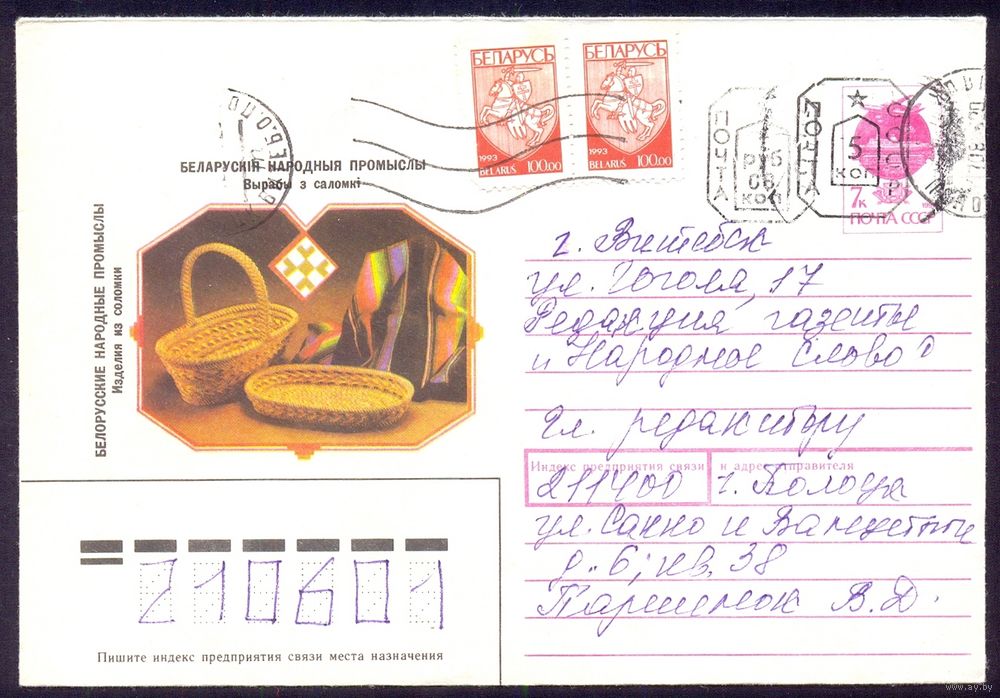 БЕЛАРУСЬ БЕЛАРУСЬ
1993 1993
BELARUS 100.00 BELARUS 100.00
ПОЧТА
РУБ
КОП
ПОЧТА СССР
5
КОП
7к
ПОЧТА СССР
БЕЛАРУСКІЯ НАРОДНЫЯ ПРОМЫСЛЫ
Вырабы з саломкі
БЕЛОРУССКИЕ НАРОДНЫЕ ПРОМЫСЛЫ
Изделия из соломки
г. Витебск
ул. Гоголя, 17
Редакция газеты
"Народное слово"
Гл. редактору
Индекс предприятия связи и адрес отправителя
211400 г. Полоцк
ул. Сакко и Ванцетти
д. 6, кв. 38
В. Д.
210601
Пишите индекс предприятия связи места назначения
www.ay.by